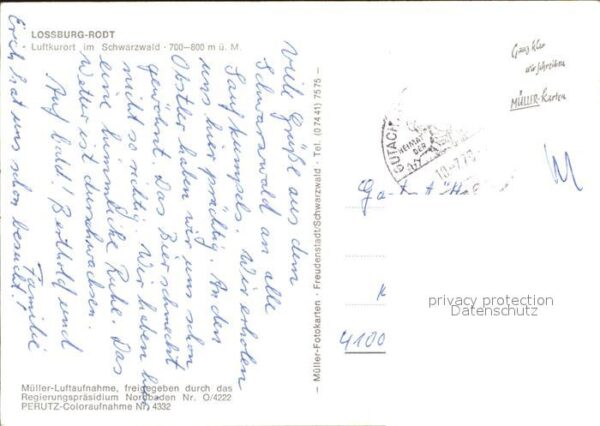 LOSSBURG-RODT
Luftkurort im Schwarzwald · 700–800 m ü. M.
Viele Grüße aus dem
Schwarzwald an alle
Saufkumpels. Wir erholen
uns hier prächtig. An den
Obstler haben wir uns schon
gewöhnt. Das Bier schmeckt
nicht so richtig. Wir haben hier
eine himmlische Ruhe. Das
Wetter ist durchwachsen.
Auf bald! Berthold und
Familie
Erich hat uns schon besucht!
Müller-Luftaufnahme, freigegeben durch das
Regierungspräsidium Nordbaden Nr. O/4222
PERUTZ-Coloraufnahme Nr. 4332
– Müller-Fotokarten · Freudenstadt/Schwarzwald · Tel. (0 74 41) 75 75 –
Ganz klar
wir schreiben
MÜLLER-Karten
GUTACH
HEIMAT
DER
4100
privacy protection
Datenschutz